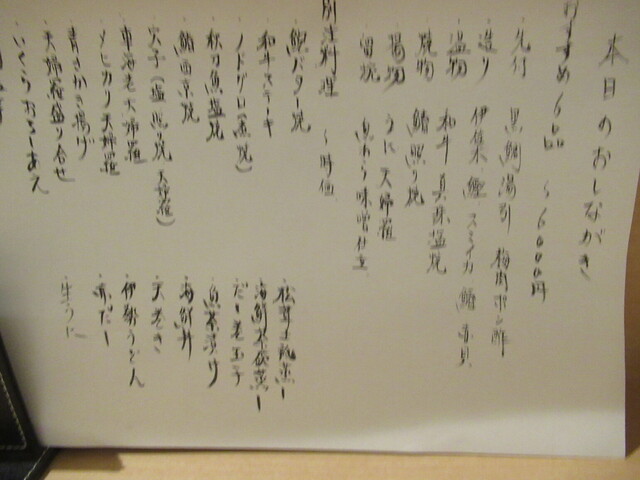 本日のおしながき
おすすめ6品 〜6000円
先付 黒鯛湯引 梅肉ポン酢
造り 伊勢 鰹 スミイカ 鰆 赤貝
温物 和牛 塩焼
焼物 鰆照り焼
揚物 うに天婦羅
留椀 魚あら味噌仕立
別注料理 〜時価
鮑バター焼
和牛ステーキ
ノドグロ(煮、焼)
秋刀魚塩焼
鰆西京焼
穴子(塩焼、照焼、天婦羅)
車海老天婦羅
メヒカリ天婦羅
青さかき揚げ
天婦羅盛り合せ
いくらおろしあえ
松茸土瓶蒸し
海鮮茶碗蒸し
だし巻玉子
魚茶漬け
海鮮丼
天巻き
伊勢うどん
赤だし
生うに